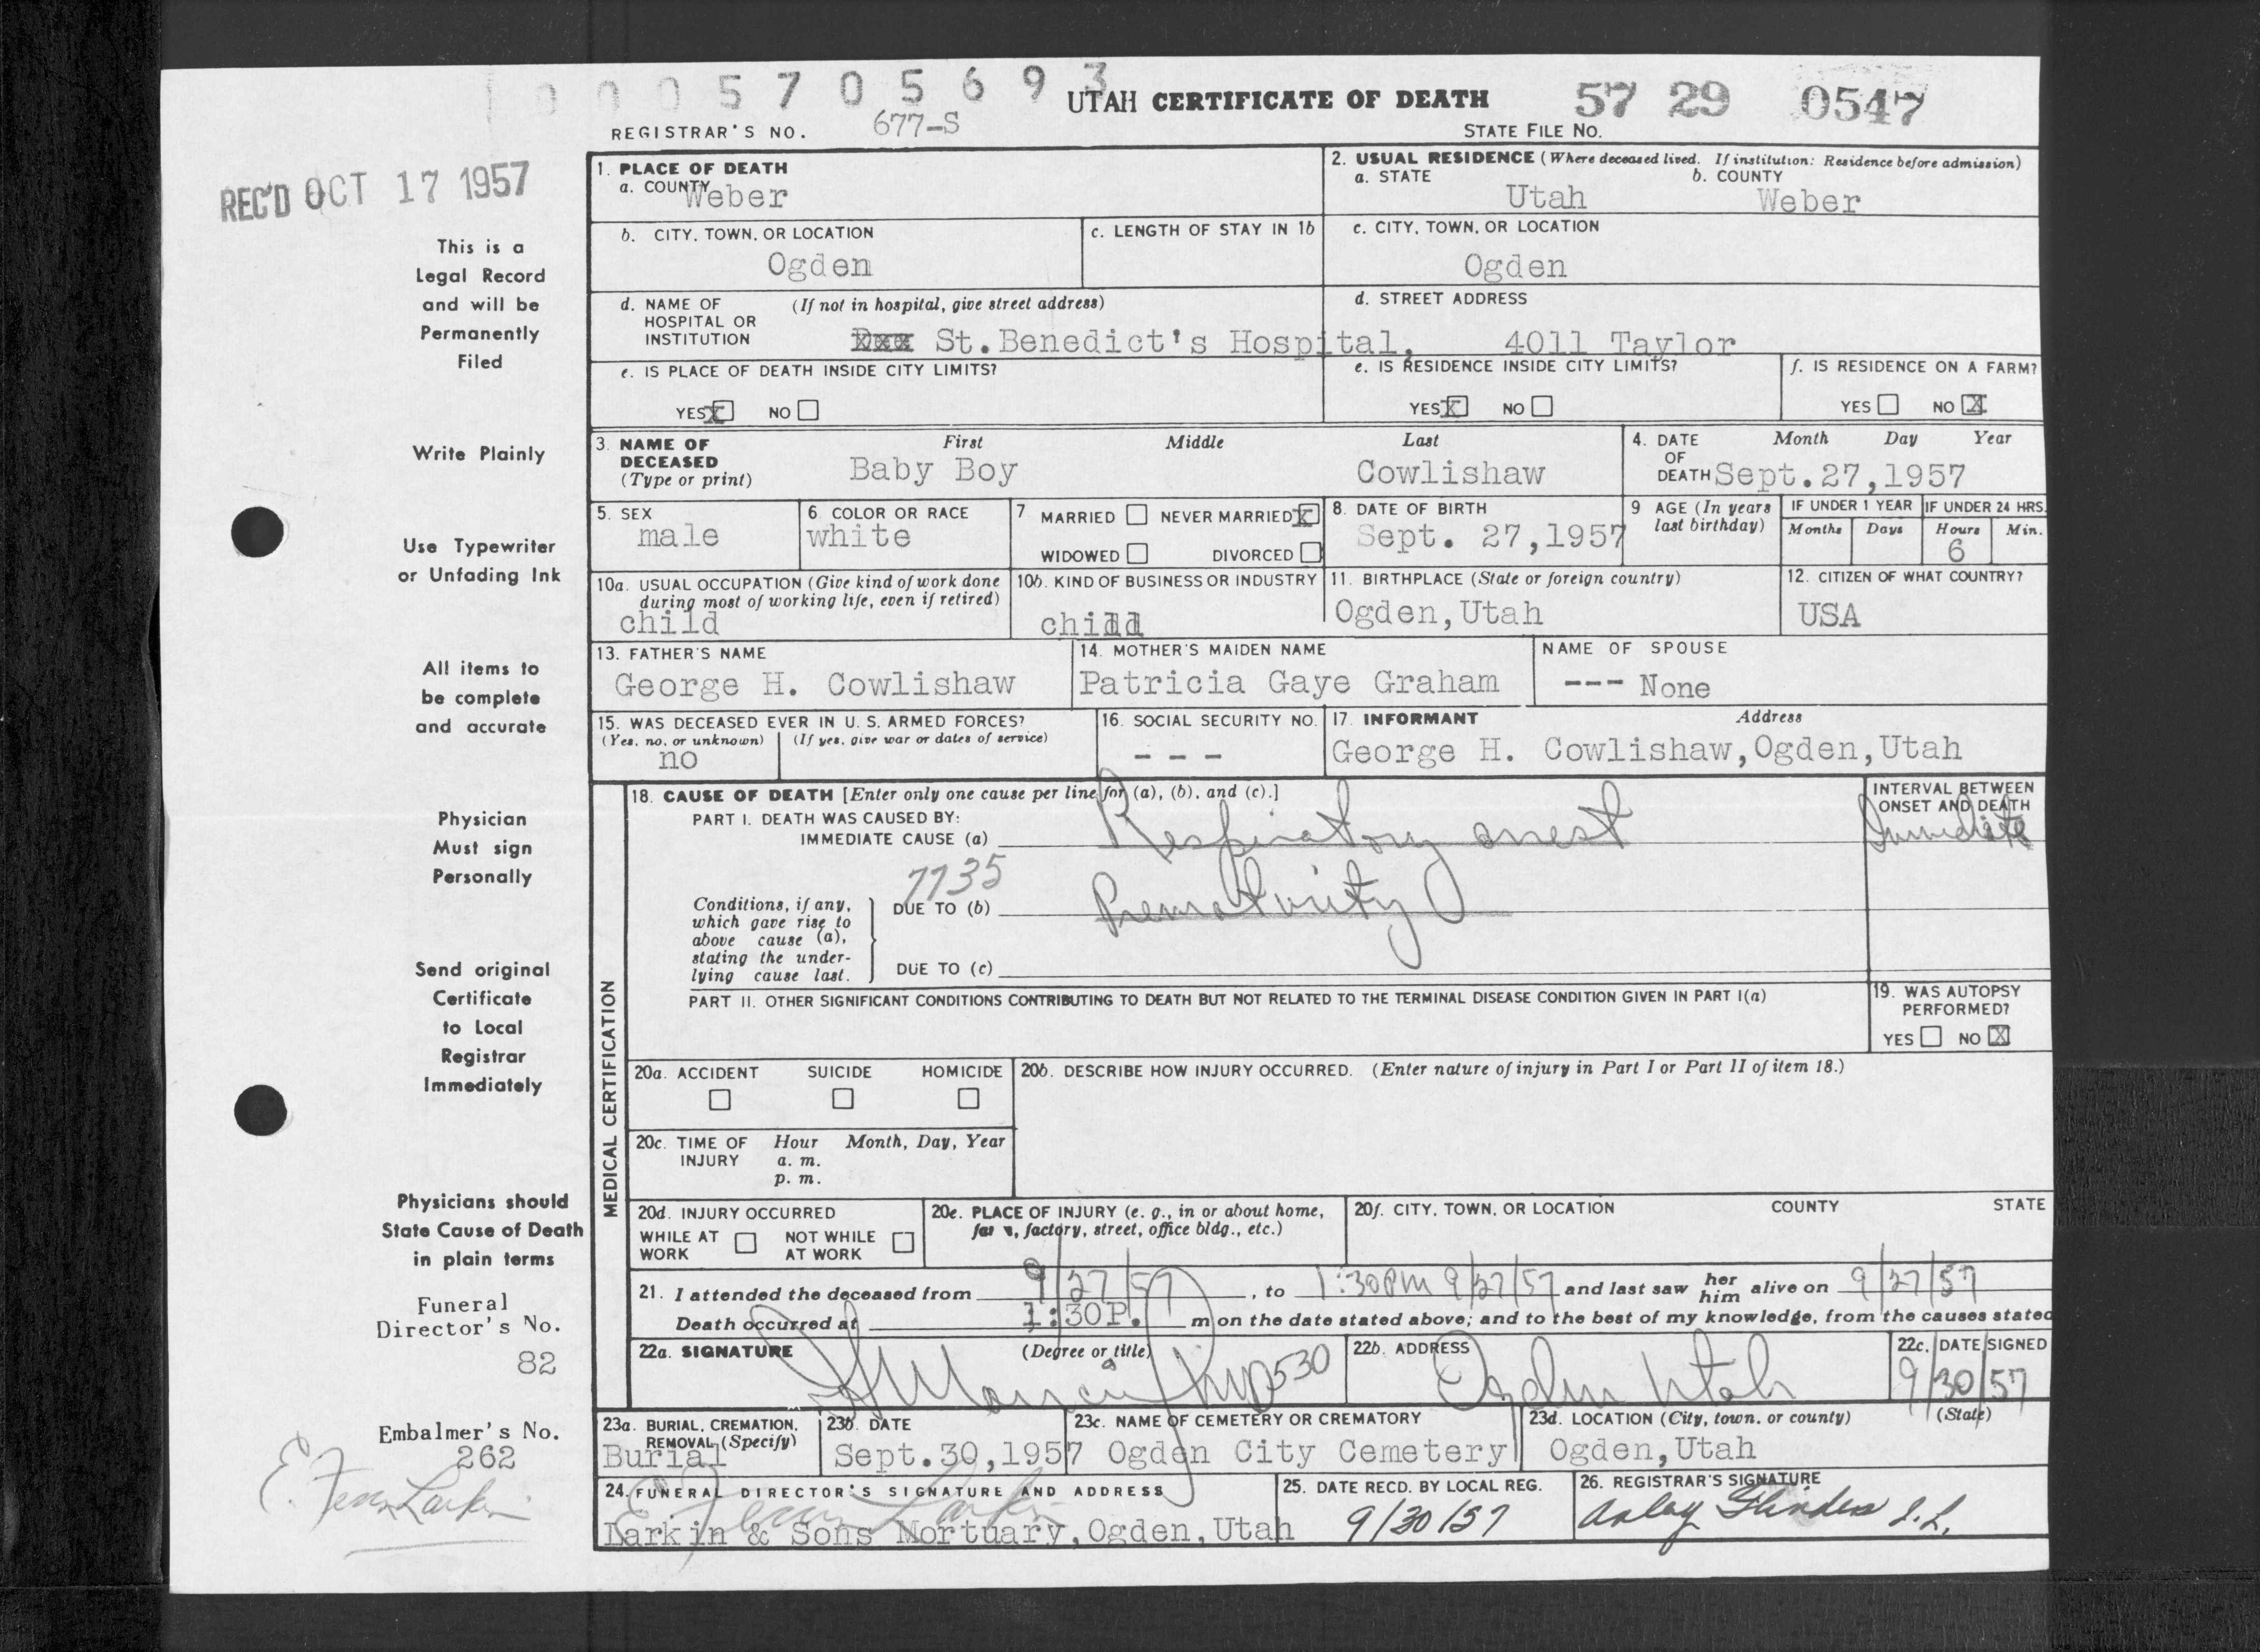 0 0 0 5 7 0 5 6 9 3
UTAH CERTIFICATE OF DEATH
57 29 0547
REGISTRAR'S NO. 677-S
STATE FILE NO.
REC'D OCT 17 1957
This is a
Legal Record
and will be
Permanently
Filed
Write Plainly
Use Typewriter
or Unfading Ink
All items to
be complete
and accurate
Physician
Must sign
Personally
Send original
Certificate
to Local
Registrar
Immediately
Physicians should
State Cause of Death
in plain terms
Funeral
Director's No.
82
Embalmer's No.
262
E. Fenn Larkin
1. PLACE OF DEATH
a. COUNTY
Weber
2. USUAL RESIDENCE (Where deceased lived. If institution: Residence before admission)
a. STATE b. COUNTY
Utah Weber
b. CITY, TOWN, OR LOCATION
Ogden
c. LENGTH OF STAY IN 1b
c. CITY, TOWN, OR LOCATION
Ogden
d. NAME OF (If not in hospital, give street address)
HOSPITAL OR
INSTITUTION
St. Benedict's Hospital,
d. STREET ADDRESS
4011 Taylor
e. IS PLACE OF DEATH INSIDE CITY LIMITS?
YES X NO
e. IS RESIDENCE INSIDE CITY LIMITS?
YES X NO
f. IS RESIDENCE ON A FARM?
YES NO X
3. NAME OF First Middle Last
DECEASED
(Type or print)
Baby Boy Cowlishaw
4. DATE Month Day Year
OF
DEATH Sept. 27, 1957
5. SEX
male
6. COLOR OR RACE
white
7 MARRIED NEVER MARRIED X
WIDOWED DIVORCED
8. DATE OF BIRTH
Sept. 27, 1957
9 AGE (In years
last birthday)
IF UNDER 1 YEAR
Months Days
IF UNDER 24 HRS.
Hours Min.
6
10a. USUAL OCCUPATION (Give kind of work done
during most of working life, even if retired)
child
10b. KIND OF BUSINESS OR INDUSTRY
child
11. BIRTHPLACE (State or foreign country)
Ogden, Utah
12. CITIZEN OF WHAT COUNTRY?
USA
13. FATHER'S NAME
George H. Cowlishaw
14. MOTHER'S MAIDEN NAME
Patricia Gaye Graham
NAME OF SPOUSE
--- None
15. WAS DECEASED EVER IN U. S. ARMED FORCES?
(Yes, no, or unknown) (If yes, give war or dates of service)
no
16. SOCIAL SECURITY NO.
- - -
17. INFORMANT Address
George H. Cowlishaw, Ogden, Utah
MEDICAL CERTIFICATION
18. CAUSE OF DEATH [Enter only one cause per line for (a), (b), and (c).]
PART I. DEATH WAS CAUSED BY:
IMMEDIATE CAUSE (a) Respiratory arrest
INTERVAL BETWEEN
ONSET AND DEATH
Immediate
7735
Conditions, if any,
which gave rise to
above cause (a),
stating the under-
lying cause last.
DUE TO (b) Prematurity
DUE TO (c)
PART II. OTHER SIGNIFICANT CONDITIONS CONTRIBUTING TO DEATH BUT NOT RELATED TO THE TERMINAL DISEASE CONDITION GIVEN IN PART I(a)
19. WAS AUTOPSY
PERFORMED?
YES NO X
20a. ACCIDENT SUICIDE HOMICIDE
20b. DESCRIBE HOW INJURY OCCURRED. (Enter nature of injury in Part I or Part II of item 18.)
20c. TIME OF Hour Month, Day, Year
INJURY a. m.
p. m.
20d. INJURY OCCURRED
WHILE AT NOT WHILE
WORK AT WORK
20e. PLACE OF INJURY (e. g., in or about home,
farm, factory, street, office bldg., etc.)
20f. CITY, TOWN, OR LOCATION COUNTY STATE
21. I attended the deceased from 9/27/57, to 1:30PM 9/27/57 and last saw her him alive on 9/27/57
Death occurred at 1:30P. m on the date stated above; and to the best of my knowledge, from the causes stated
22a. SIGNATURE (Degree or title)
530
22b. ADDRESS
Ogden Utah
22c. DATE SIGNED
9/30/57
23a. BURIAL, CREMATION,
REMOVAL (Specify)
Burial
23b. DATE
Sept. 30, 1957
23c. NAME OF CEMETERY OR CREMATORY
Ogden City Cemetery
23d. LOCATION (City, town, or county) (State)
Ogden, Utah
24. FUNERAL DIRECTOR'S SIGNATURE AND ADDRESS
E. Fenn Larkin
Larkin & Sons Mortuary, Ogden, Utah
25. DATE RECD. BY LOCAL REG.
9/30/57
26. REGISTRAR'S SIGNATURE